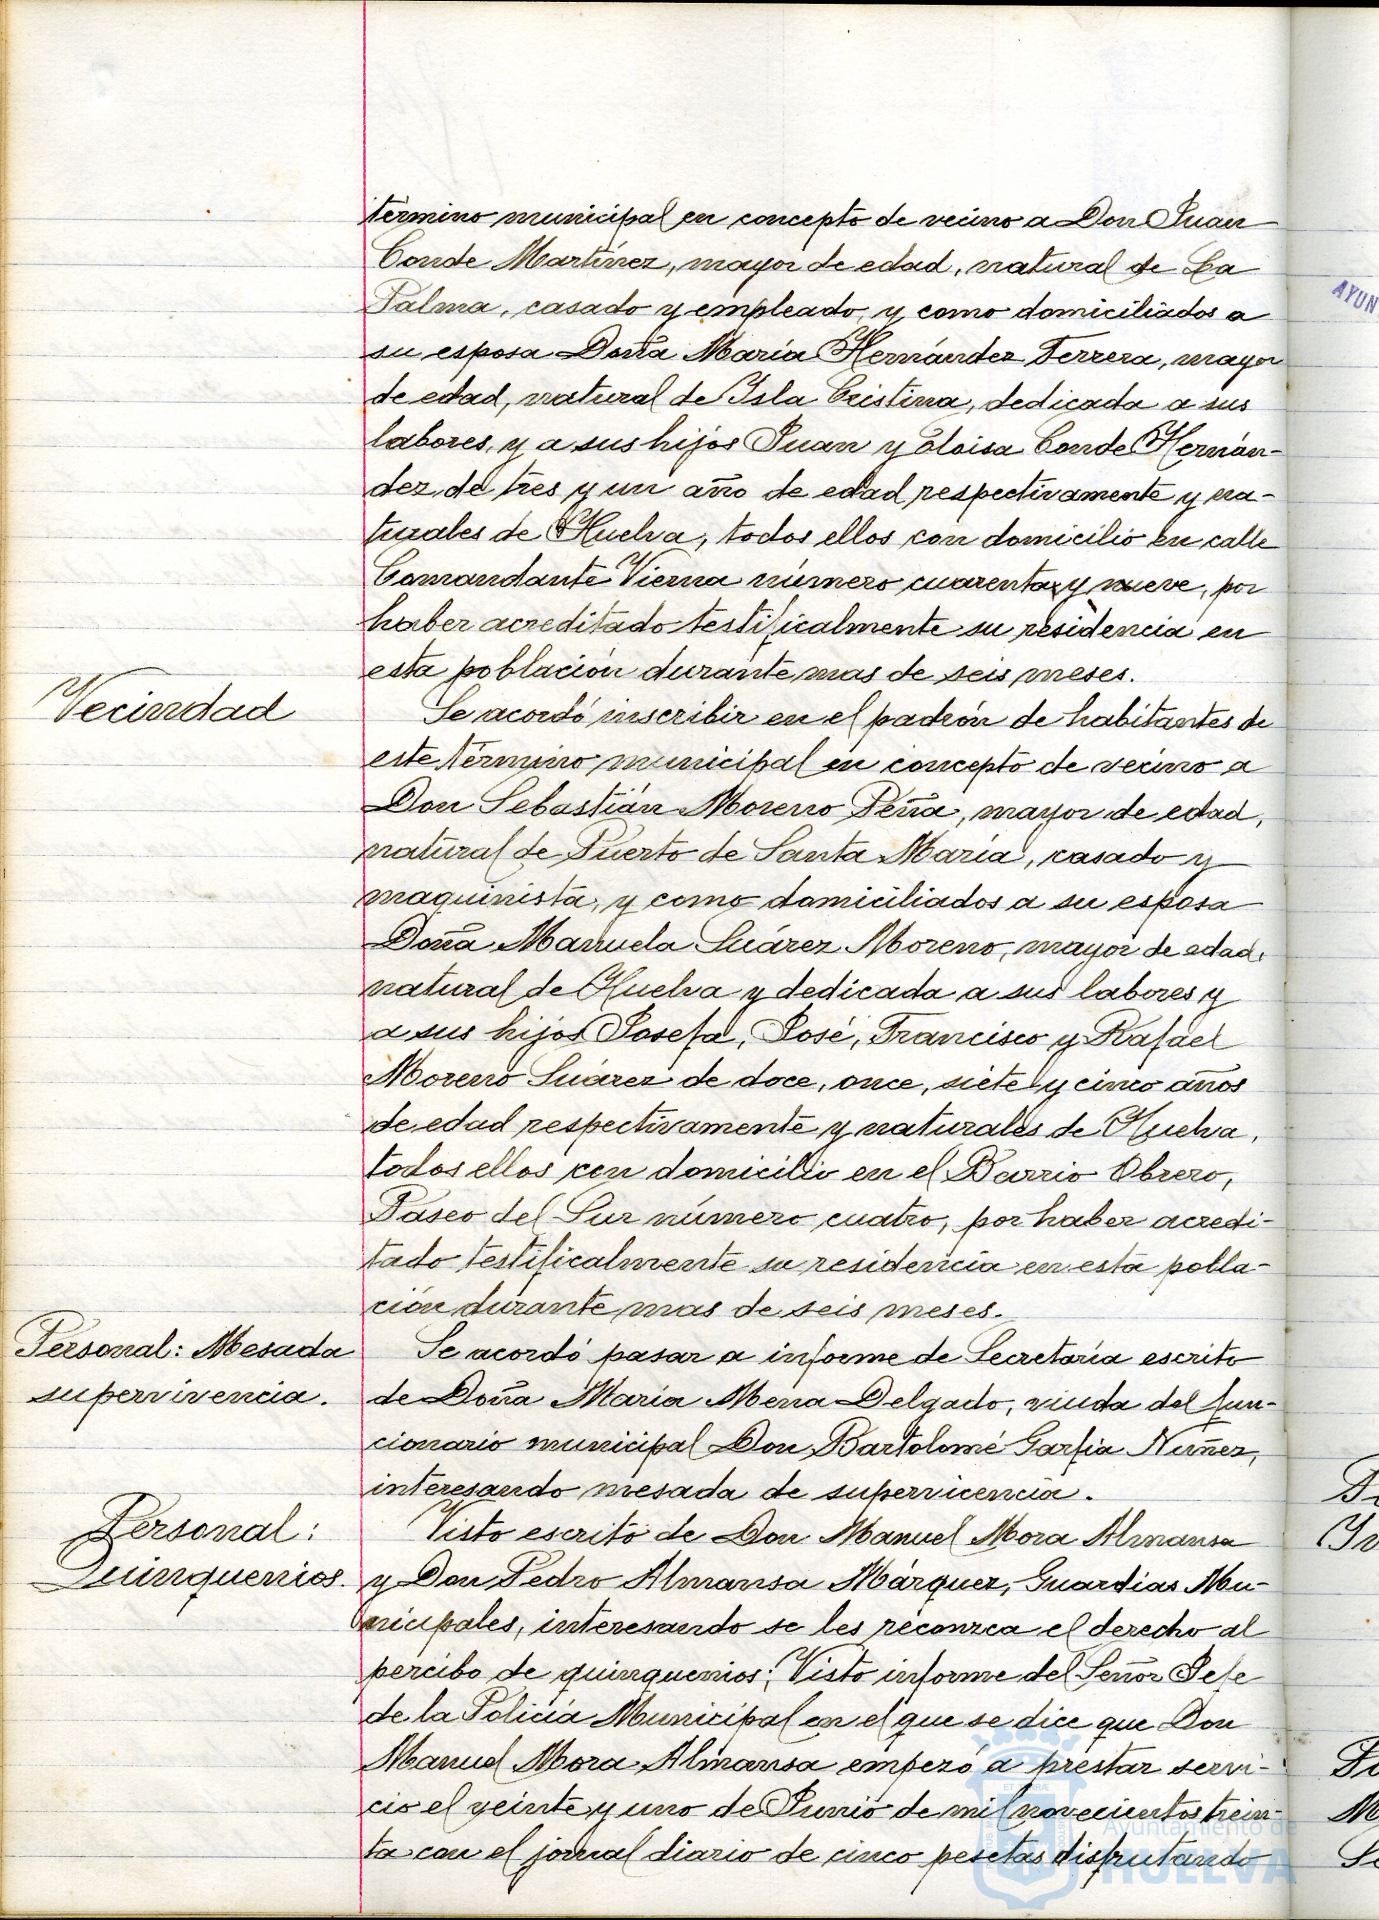 término municipal en concepto de vecino a Don Juan
Conde Martínez, mayor de edad, natural de La
Palma, casado y empleado, y como domiciliados a
su esposa Doña María Hernández Ferrera, mayor
de edad, natural de Isla Cristina, dedicada a sus
labores, y a sus hijos Juan y Eloisa Conde Hernán-
dez de tres y un año de edad respectivamente y na-
turales de Huelva, todos ellos con domicilio en calle
Comandante Vierna número cuarenta y nueve, por
haber acreditado testificalmente su residencia en
esta población durante mas de seis meses.
Vecindad
Se acordó inscribir en el padrón de habitantes de
este término municipal en concepto de vecino a
Don Sebastián Moreno Peña, mayor de edad,
natural de Puerto de Santa María, casado y
maquinista, y como domiciliados a su esposa
Doña Manuela Suárez Moreno, mayor de edad,
natural de Huelva y dedicada a sus labores y
a sus hijos Josefa, José, Francisco y Rafael
Moreno Suárez de doce, once, siete y cinco años
de edad respectivamente y naturales de Huelva,
todos ellos con domicilio en el Barrio Obrero,
Paseo del Sur número cuatro, por haber acredi-
tado testificalmente su residencia en esta pobla-
ción durante mas de seis meses.
Personal: Mesada
supervivencia.
Se acordó pasar a informe de Secretaría escrito
de Doña María Mena Delgado, viuda del fun-
cionario municipal Don Bartolomé Garfia Nuñez,
interesando mesada de supervicencia.
Personal:
Quinquenios.
Visto escrito de Don Manuel Mora Almansa
y Don Pedro Almansa Márquez, Guardias Mu-
nicipales, interesando se les reconzca el derecho al
percibo de quinquenios; Visto informe del Señor Jefe
de la Policía Municipal en el que se dice que Don
Manuel Mora Almansa empezó a prestar servi-
cio el veinte y uno de Junio de mil novecientos trein-
ta con el jornal diario de cinco pesetas disfrutando
Ayuntamiento de
HUELVA
AYUN